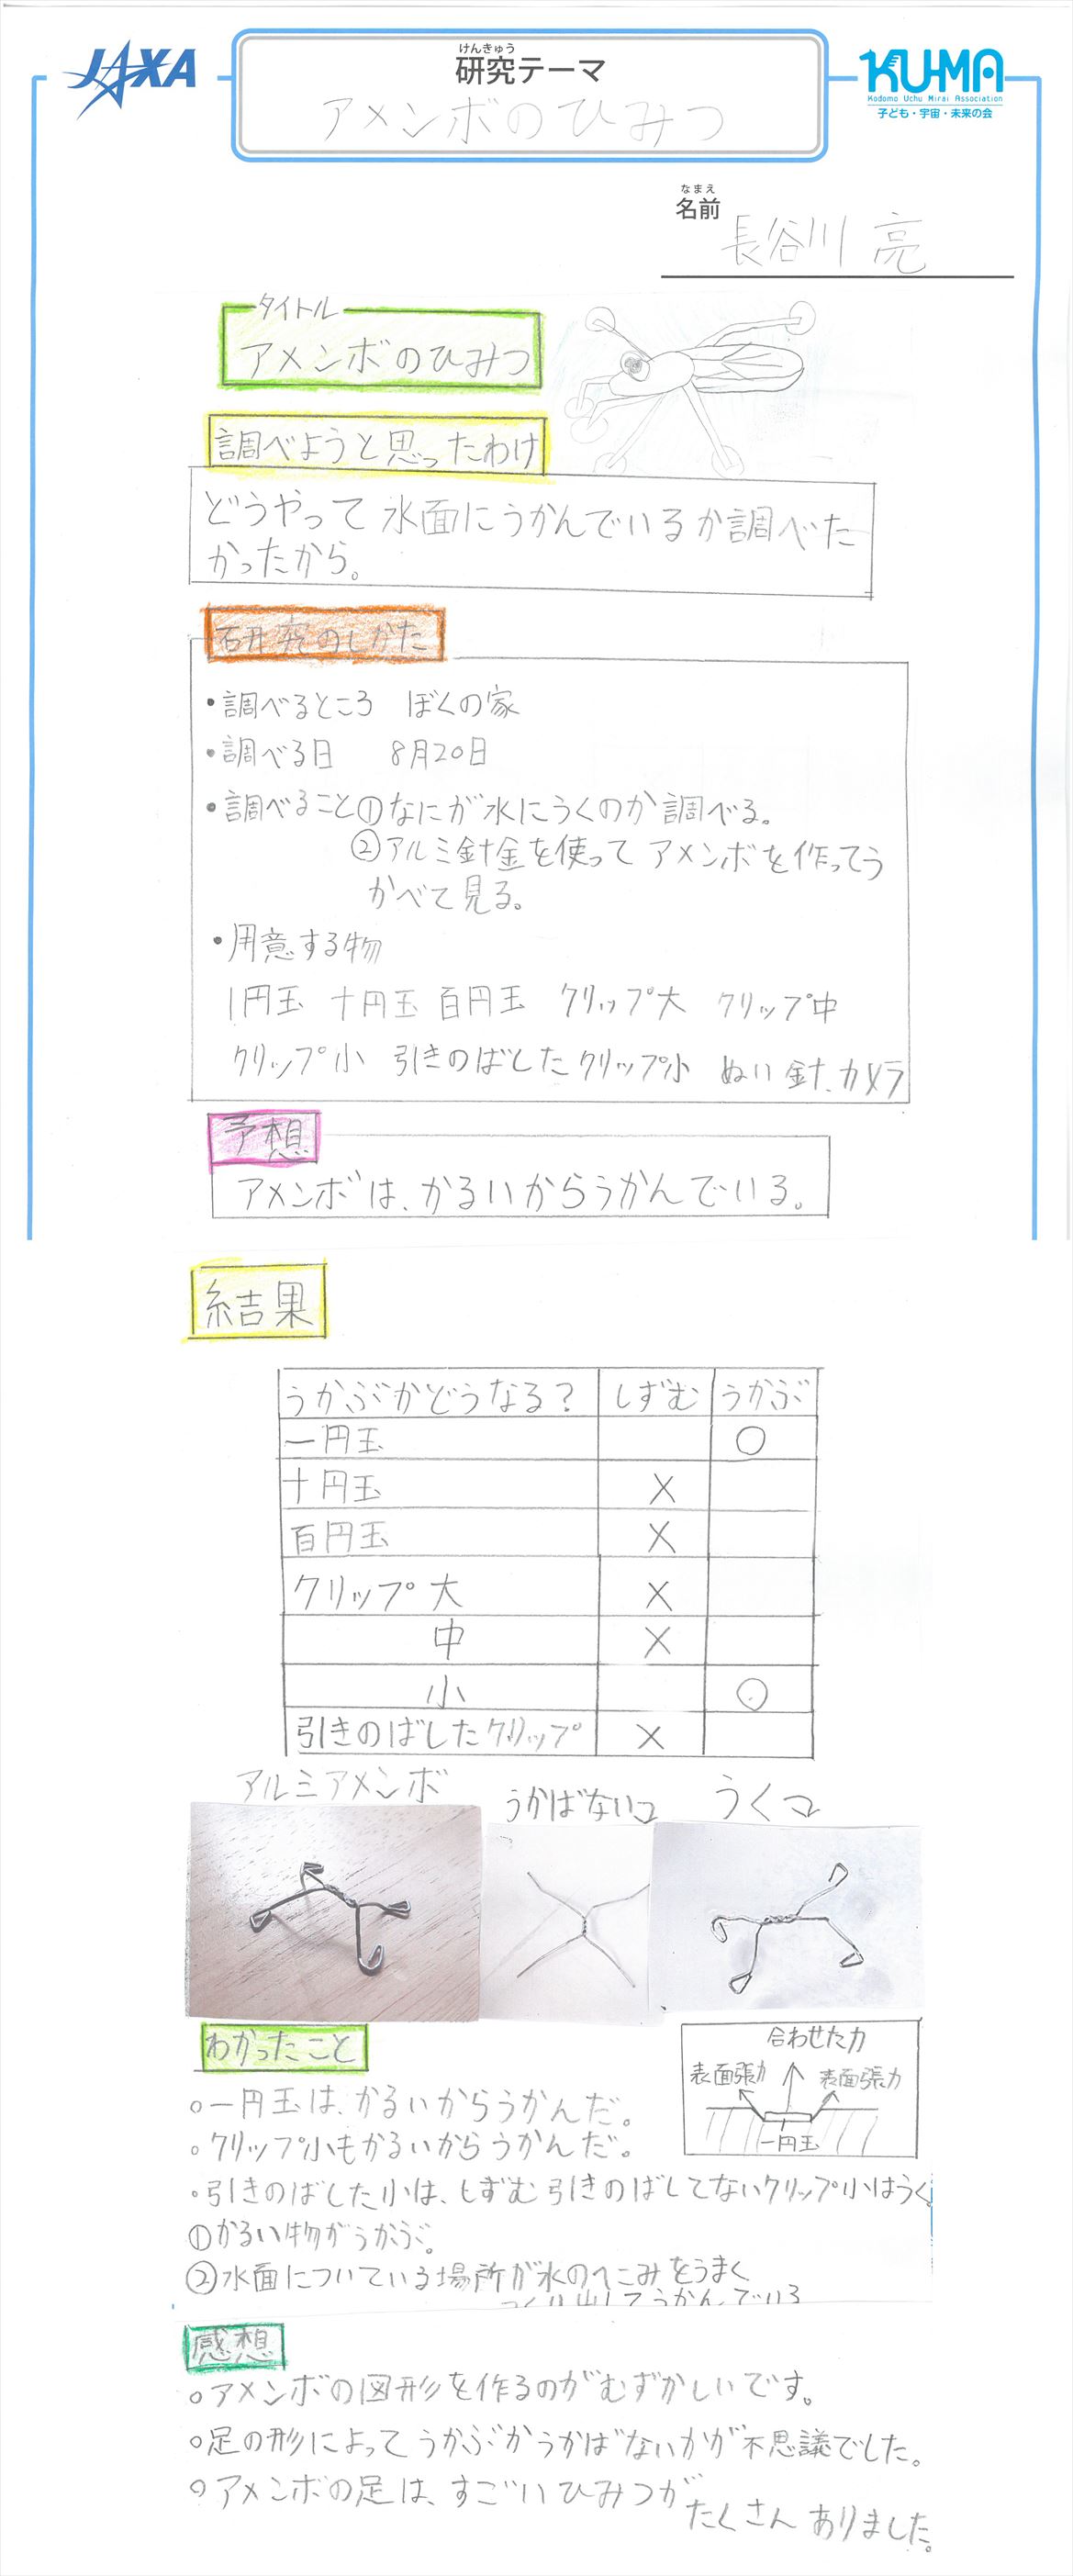 JAXA
けんきゅう
研究テーマ
アメンボのひみつ
KU-MA
Kodomo Uchu Mirai Association
子ども・宇宙・未来の会
なまえ
名前
長谷川 亮
タイトル
アメンボのひみつ
調べようと思ったわけ
どうやって水面にうかんでいるか調べた
かったから。
研究のしかた
・調べるところ ぼくの家
・調べる日 8月20日
・調べること①なにが水にうくのか調べる。
②アルミ針金を使ってアメンボを作ってう
かべて見る。
・用意する物
1円玉 十円玉 百円玉 クリップ大 クリップ中
クリップ小 引きのばしたクリップ小 ぬい針、カメラ
予想
アメンボは、かるいからうかんでいる。
結果
うかぶかどうなる? しずむ うかぶ
一円玉 ○
十円玉 ×
百円玉 ×
クリップ大 ×
中 ×
小 ○
引きのばしたクリップ ×
アルミアメンボ うかばない うく
わかったこと
合わせた力
表面張力 表面張力
一円玉
○一円玉は、かるいからうかんだ。
○クリップ小もかるいからうかんだ。
・引きのばした小は、しずむ引きのばしてないクリップ小はうく。
①かるい物がうかぶ。
②水面についている場所が水のへこみをうまく
つくり出してうかんでいる
感想
○アメンボの図形を作るのがむずかしいです。
○足の形によってうかぶかうかばないかが不思議でした。
○アメンボの足は、すごいひみつが
たくさんありました。